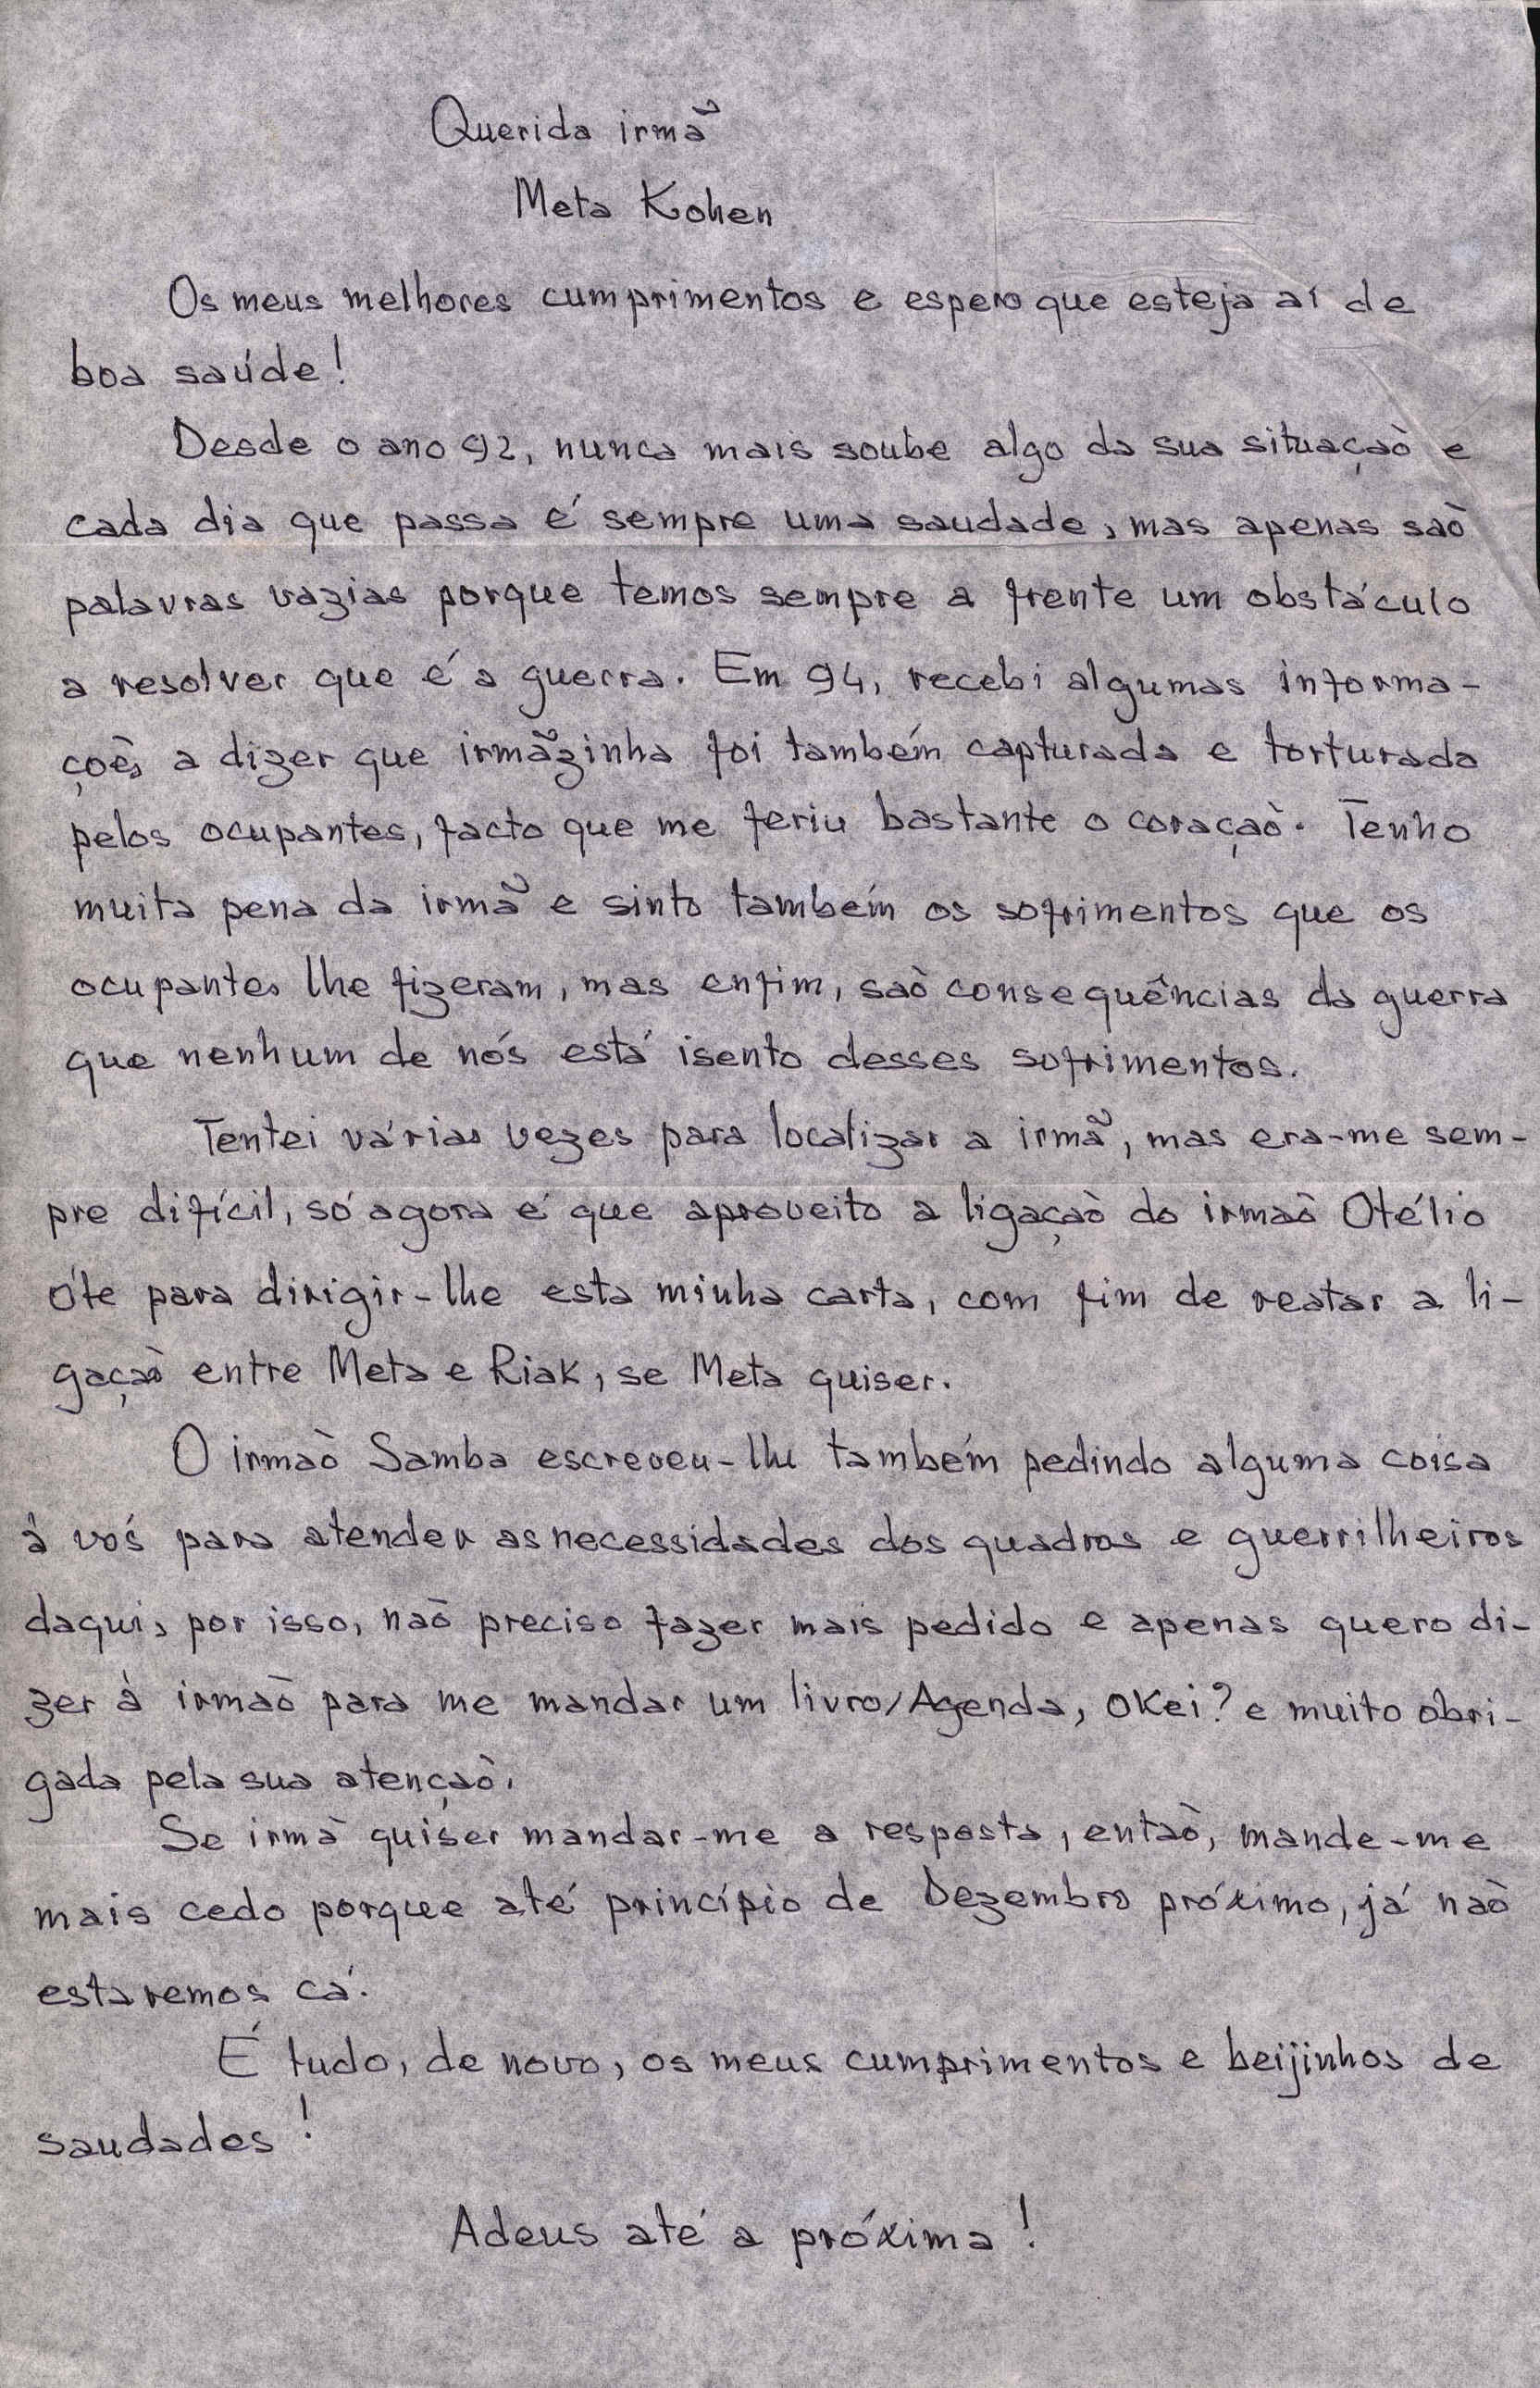 Querida irmã
Meta Kohen
Os meus melhores cumprimentos e espero que esteja aí de
boa saúde!
Desde o ano 92, nunca mais soube algo da sua situaçaò e
cada dia que passa é sempre uma saudade, mas apenas saò
palavras vazias porque temos sempre a frente um obstáculo
a resolver que é a guerra. Em 94, recebi algumas informa-
çoès a dizer que irmãzinha foi também capturada e torturada
pelos ocupantes, facto que me feriu bastante o coraçaò. Tenho
muita pena da irmã e sinto também os sofrimentos que os
ocupantes lhe fizeram, mas enfim, saò consequências da guerra
que nenhum de nós está isento desses sofrimentos.
Tentei várias vezes para localizar a irmã, mas era-me sem-
pre difícil, só agora é que aproveito a ligaçaò do irmaò Otélio
Óte para dirigir-lhe esta minha carta, com fim de reatar a li-
gaçaò entre Meta e Riak, se Meta quiser.
O irmaò Samba escreveu-lhe também pedindo alguma coisa
á vós para atender as necessidades dos quadros e guerrilheiros
daqui, por isso, naò preciso fazer mais pedido e apenas quero di-
zer à irmaò para me mandar um livro/Agenda, okei? e muito obri-
gada pela sua atençaò.
Se irmà quiser mandar-me a resposta, entaò, mande-me
mais cedo porque até princípio de Dezembro próximo, já naò
estaremos cá.
É tudo, de novo, os meus cumprimentos e beijinhos de
saudades!
Adeus até a próxima!